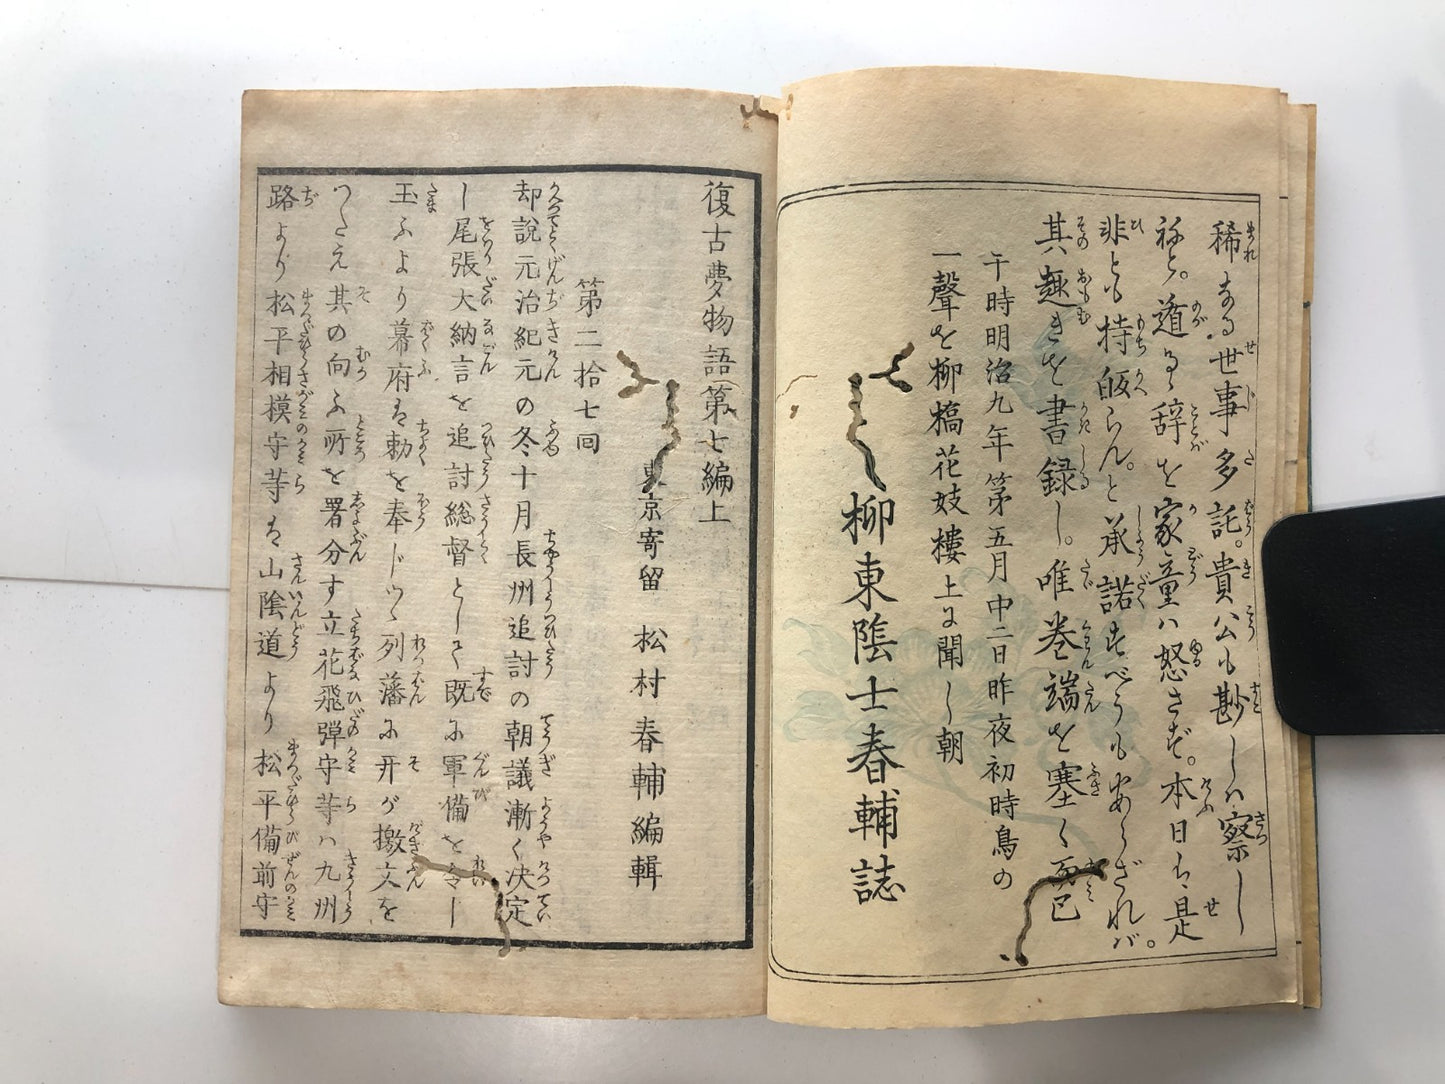 稀なる世事多託。貴公も尠しハ察し
ねと。遁るゝ辞を家童ハ怒さず。本日ちゝ是
非とも持皈らん。と承諾すべうもあらざれバ。
其趣きを書録し。唯巻端を塞く而已
于時明治九年第五月中二日昨夜初時鳥の
一聲を柳橋花妓樓上に聞し朝
柳東陰士春輔誌
復古夢物語第七編上
東京寄留 松村春輔編輯
第二拾七回
却説元治紀元の冬十月長州追討の朝議漸く決定
し尾張大納言を追討総督として既に軍備を令し
玉ふより幕府は勅を奉じつゝ列藩に其が檄文を
つたえ其の向ふ所を署分す立花飛弾守等ハ九州
路より松平相模守等は山陰道より松平備前守